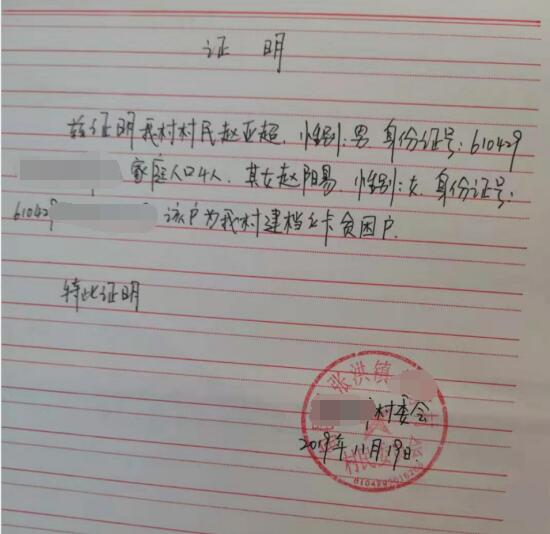 证 明
兹证明我村村民赵亚超,性别:男,身份证号:610429
家庭人口4人,其女赵阳易,性别:女,身份证号:
610429 该户为我村建档立卡贫困户.
特此证明
张洪镇
村委会
2019年11月19日
村民委员会